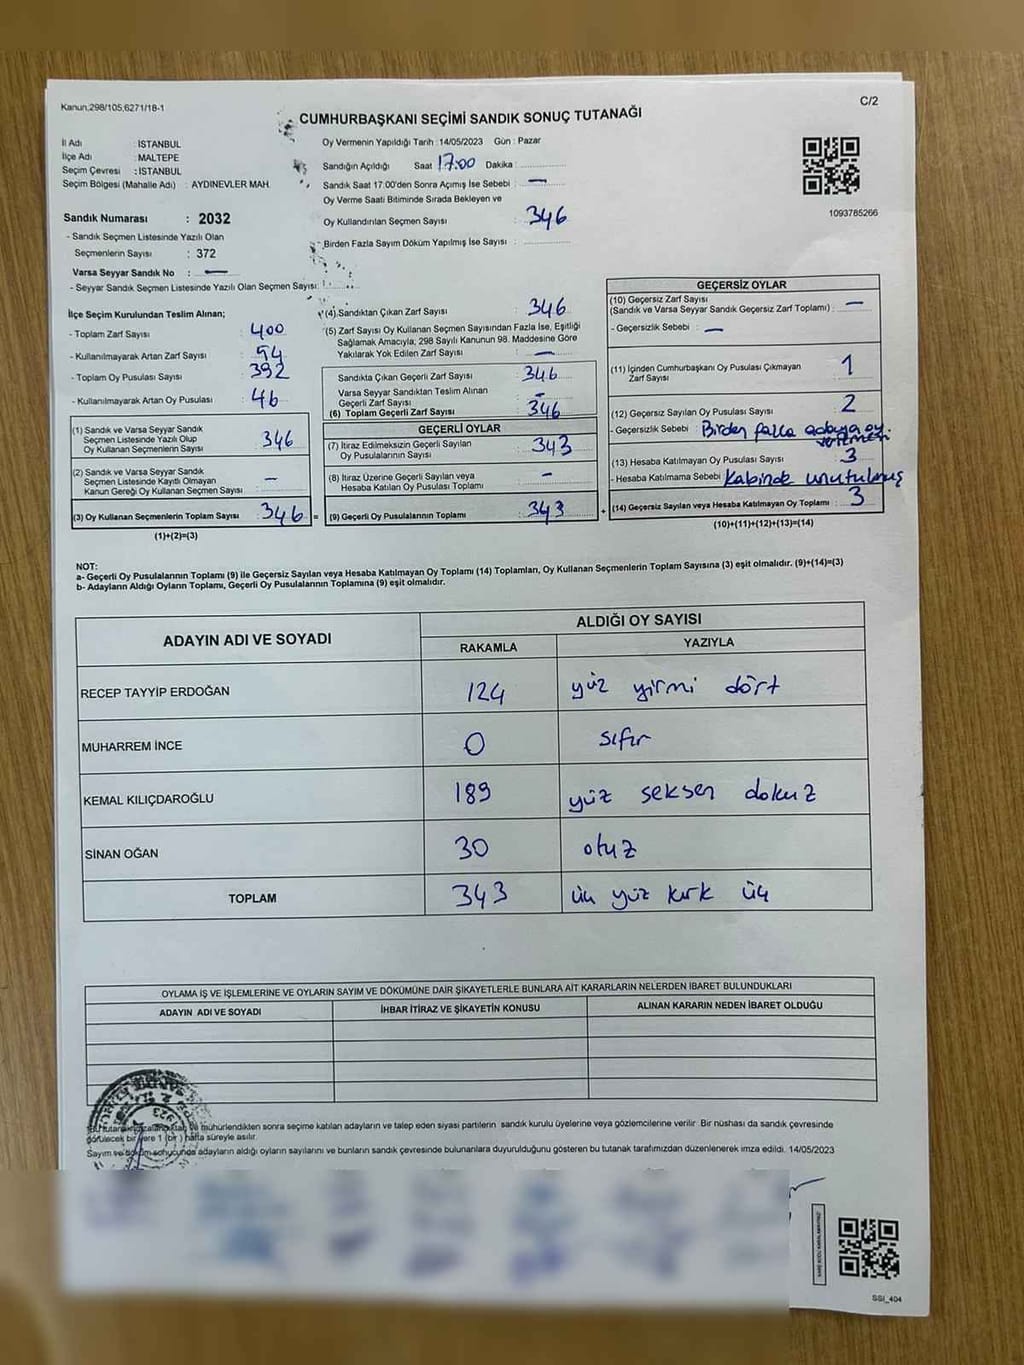 Kanun.298/105,6271/18-1
C/2
CUMHURBAŞKANI SEÇİMİ SANDIK SONUÇ TUTANAĞI
İl Adı : İSTANBUL
İlçe Adı : MALTEPE
Seçim Çevresi : İSTANBUL
Seçim Bölgesi (Mahalle Adı) : AYDINEVLER MAH.
Sandık Numarası : 2032
- Sandık Seçmen Listesinde Yazılı Olan
Seçmenlerin Sayısı : 372
Varsa Seyyar Sandık No : —
- Seyyar Sandık Seçmen Listesinde Yazılı Olan Seçmen Sayısı:
Oy Vermenin Yapıldığı Tarih : 14/05/2023 Gün : Pazar
Sandığın Açıldığı Saat 17:00 Dakika :
Sandık Saat 17.00'den Sonra Açımış İse Sebebi : —
Oy Verme Saati Bitiminde Sırada Bekleyen ve
Oy Kullandırılan Seçmen Sayısı : 346
Birden Fazla Sayım Döküm Yapılmış İse Sayısı :
1093785266
İlçe Seçim Kurulundan Teslim Alınan;
- Toplam Zarf Sayısı : 400
- Kullanılmayarak Artan Zarf Sayısı : 54
- Toplam Oy Pusulası Sayısı : 392
- Kullanılmayarak Artan Oy Pusulası : 46
(1) Sandık ve Varsa Seyyar Sandık
Seçmen Listesinde Yazılı Olup
Oy Kullanan Seçmenlerin Sayısı : 346
(2) Sandık ve Varsa Seyyar Sandık
Seçmen Listesinde Kayıtlı Olmayan
Kanun Gereği Oy Kullanan Seçmen Sayısı : —
(3) Oy Kullanan Seçmenlerin Toplam Sayısı : 346
(1)+(2)=(3)
(4) Sandıktan Çıkan Zarf Sayısı : 346
(5) Zarf Sayısı Oy Kullanan Seçmen Sayısından Fazla İse, Eşitliği
Sağlamak Amacıyla; 298 Sayılı Kanunun 98. Maddesine Göre
Yakılarak Yok Edilen Zarf Sayısı : —
Sandıkta Çıkan Geçerli Zarf Sayısı : 346
Varsa Seyyar Sandıktan Teslim Alınan
Geçerli Zarf Sayısı : —
(6) Toplam Geçerli Zarf Sayısı : 346
GEÇERLİ OYLAR
(7) İtiraz Edilmeksizin Geçerli Sayılan
Oy Pusulalarının Sayısı : 343
(8) İtiraz Üzerine Geçerli Sayılan veya
Hesaba Katılan Oy Pusulası Toplamı : —
= (9) Geçerli Oy Pusulalarının Toplamı : 343 +
GEÇERSİZ OYLAR
(10) Geçersiz Zarf Sayısı
(Sandık ve Varsa Seyyar Sandık Geçersiz Zarf Toplamı) : —
- Geçersizlik Sebebi : —
(11) İçinden Cumhurbaşkanı Oy Pusulası Çıkmayan
Zarf Sayısı : 1
(12) Geçersiz Sayılan Oy Pusulası Sayısı : 2
- Geçersizlik Sebebi : Birden fazla adaya oy
verilmesi
(13) Hesaba Katılmayan Oy Pusulası Sayısı : 3
- Hesaba Katılmama Sebebi : Kabinde unutulmuş
(14) Geçersiz Sayılan veya Hesaba Katılmayan Oy Toplamı : 3
(10)+(11)+(12)+(13)=(14)
NOT:
a- Geçerli Oy Pusulalarının Toplamı (9) ile Geçersiz Sayılan veya Hesaba Katılmayan Oy Toplamı (14) Toplamları, Oy Kullanan Seçmenlerin Toplam Sayısına (3) eşit olmalıdır. (9)+(14)=(3)
b- Adayların Aldığı Oyların Toplamı, Geçerli Oy Pusulalarının Toplamına (9) eşit olmalıdır.
ADAYIN ADI VE SOYADI
ALDIĞI OY SAYISI
RAKAMLA YAZIYLA
RECEP TAYYİP ERDOĞAN 124 yüz yirmi dört
MUHARREM İNCE 0 sıfır
KEMAL KILIÇDAROĞLU 189 yüz seksen dokuz
SİNAN OĞAN 30 otuz
TOPLAM 343 üç yüz kırk üç
OYLAMA İŞ VE İŞLEMLERİNE VE OYLARIN SAYIM VE DÖKÜMÜNE DAİR ŞİKAYETLERLE BUNLARA AİT KARARLARIN NELERDEN İBARET BULUNDUKLARI
ADAYIN ADI VE SOYADI İHBAR İTİRAZ VE ŞİKAYETİN KONUSU ALINAN KARARIN NEDEN İBARET OLDUĞU
ve mühürlendikten sonra seçime katılan adayların ve talep eden siyasi partilerin sandık kurulu üyelerine veya gözlemcilerine verilir. Bir nüshası da sandık çevresinde
görülecek bir yere 1 (bir) hafta süreyle asılır.
Sayım ve döküm sonucunda adayların aldığı oyların sayılarını ve bunların sandık çevresinde bulunanlara duyurulduğunu gösteren bu tutanak tarafımızdan düzenlenerek imza edildi. 14/05/2023
SSI_404